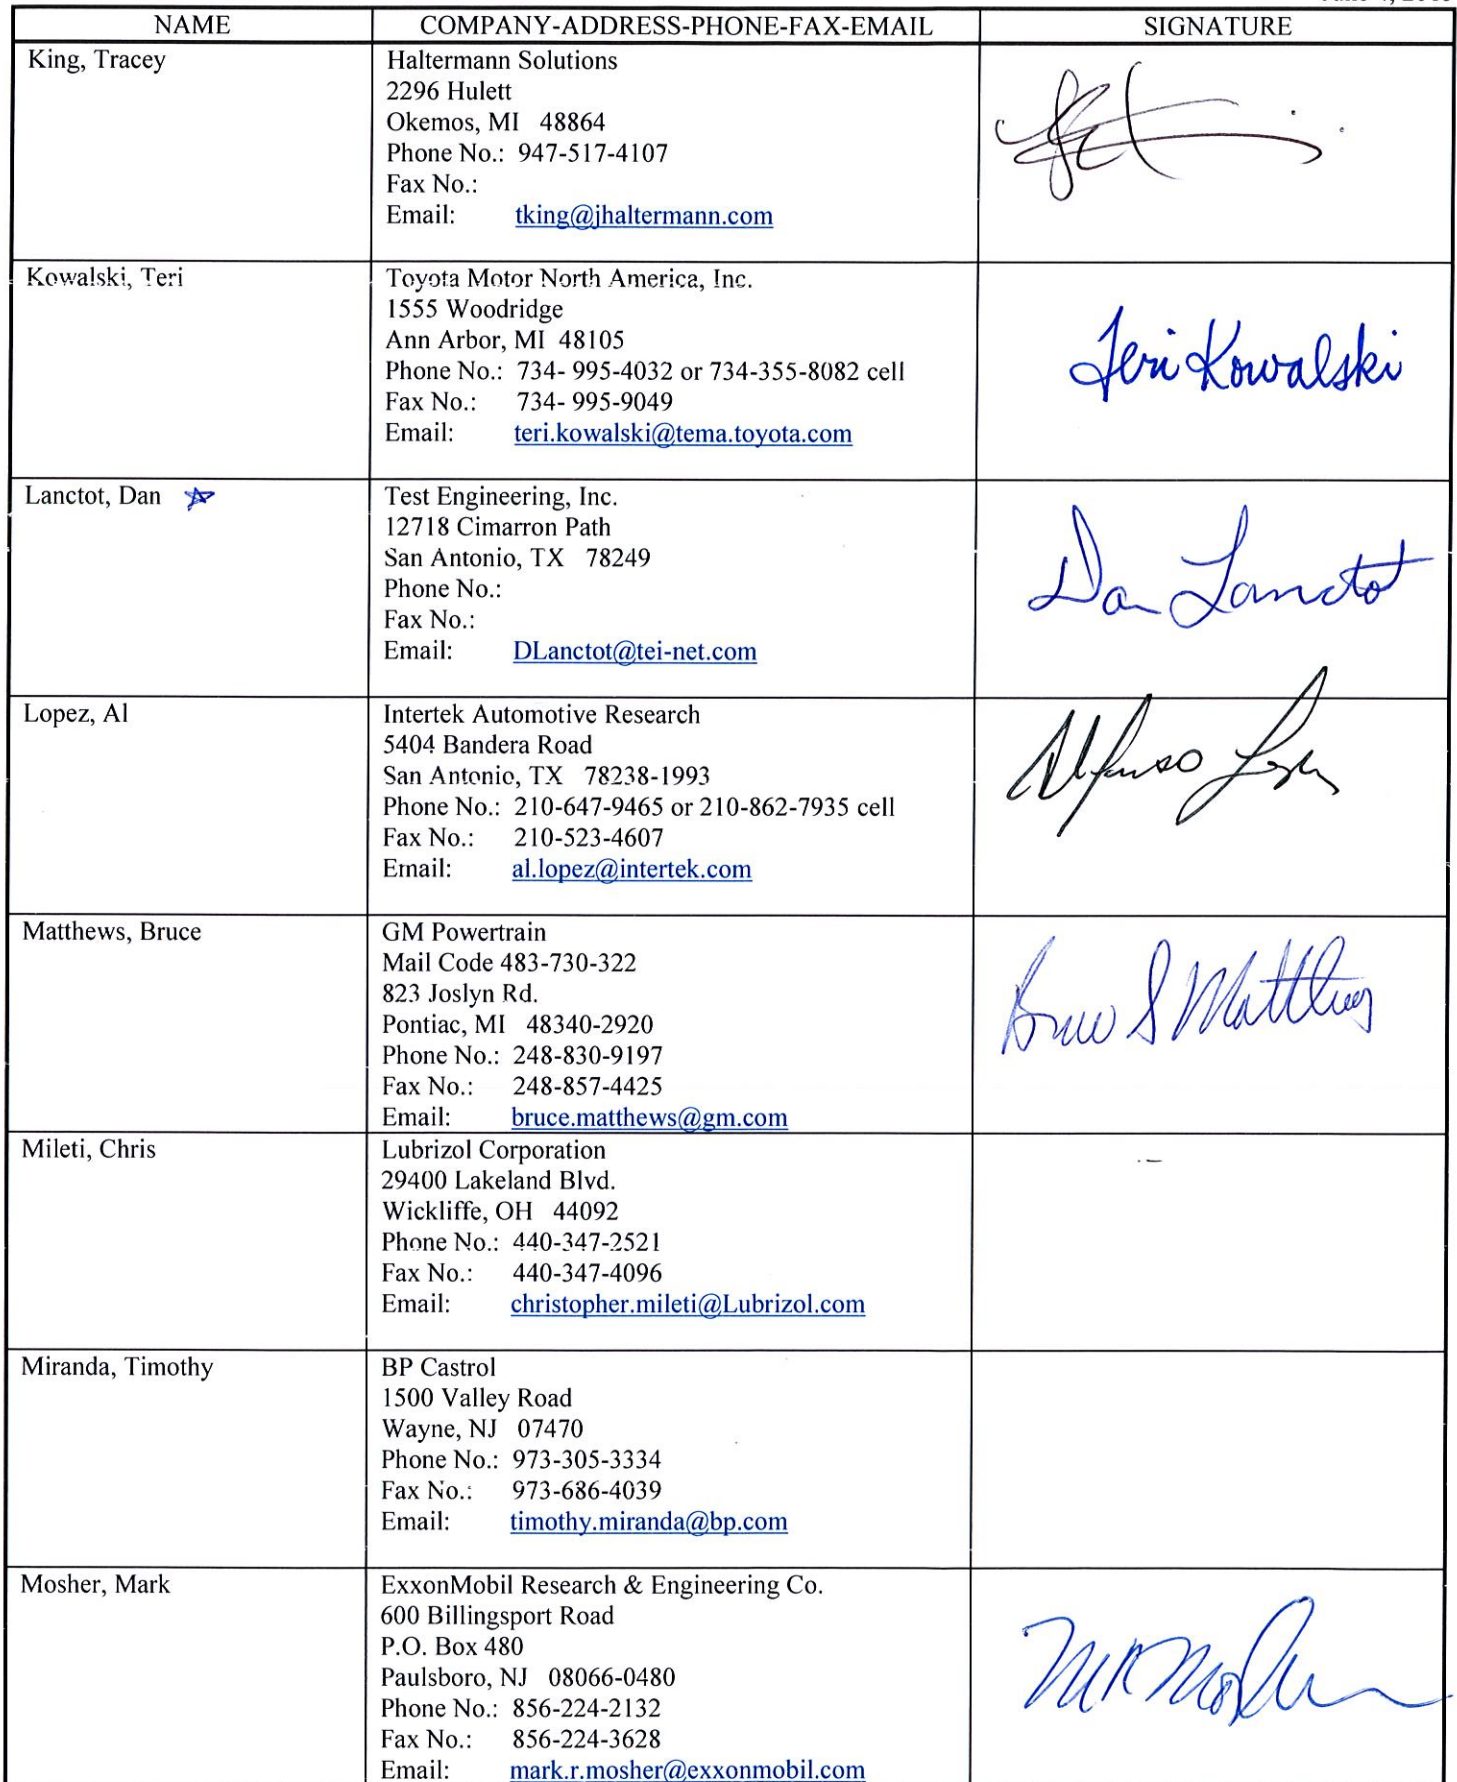 NAME COMPANY-ADDRESS-PHONE-FAX-EMAIL SIGNATURE
King, Tracey
Haltermann Solutions
2296 Hulett
Okemos, MI 48864
Phone No.: 947-517-4107
Fax No.:
Email: tking@jhaltermann.com
Kowalski, Teri
Toyota Motor North America, Inc.
1555 Woodridge
Ann Arbor, MI 48105
Phone No.: 734- 995-4032 or 734-355-8082 cell
Fax No.: 734- 995-9049
Email: teri.kowalski@tema.toyota.com
Teri Kowalski
Lanctot, Dan
Test Engineering, Inc.
12718 Cimarron Path
San Antonio, TX 78249
Phone No.:
Fax No.:
Email: DLanctot@tei-net.com
Dan Lanctot
Lopez, Al
Intertek Automotive Research
5404 Bandera Road
San Antonio, TX 78238-1993
Phone No.: 210-647-9465 or 210-862-7935 cell
Fax No.: 210-523-4607
Email: al.lopez@intertek.com
Alfonso Lopez
Matthews, Bruce
GM Powertrain
Mail Code 483-730-322
823 Joslyn Rd.
Pontiac, MI 48340-2920
Phone No.: 248-830-9197
Fax No.: 248-857-4425
Email: bruce.matthews@gm.com
Bruce S Matthews
Mileti, Chris
Lubrizol Corporation
29400 Lakeland Blvd.
Wickliffe, OH 44092
Phone No.: 440-347-2521
Fax No.: 440-347-4096
Email: christopher.mileti@Lubrizol.com
Miranda, Timothy
BP Castrol
1500 Valley Road
Wayne, NJ 07470
Phone No.: 973-305-3334
Fax No.: 973-686-4039
Email: timothy.miranda@bp.com
Mosher, Mark
ExxonMobil Research & Engineering Co.
600 Billingsport Road
P.O. Box 480
Paulsboro, NJ 08066-0480
Phone No.: 856-224-2132
Fax No.: 856-224-3628
Email: mark.r.mosher@exxonmobil.com
MR Mosher